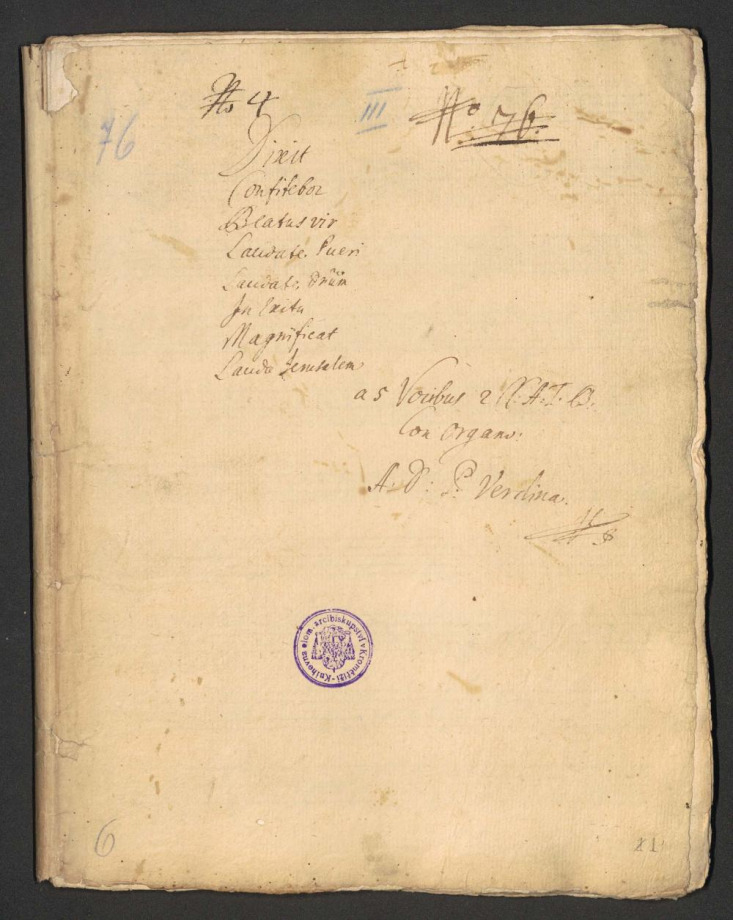 No 4
III
No. 76.
76
Dixit
Confitebor
Beatus vir
Laudate Pueri
Laudate Dnūm
In Exitu
Magnificat
Lauda Jerusalem
a 5 Vocibus 2 C: A: T: B.
Con Organo.
A. D: P. Verdina.
Knihovna olom. arcibiskupství v Kroměříži
6
21